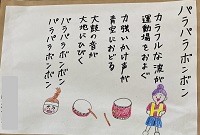 パラパラボンボン
カラフルな波が
運動場をおよぐ
力強いかけ声が
青空におどる
太鼓の音が
大地にひびく
パラパラボンボン
パラパラボンボン